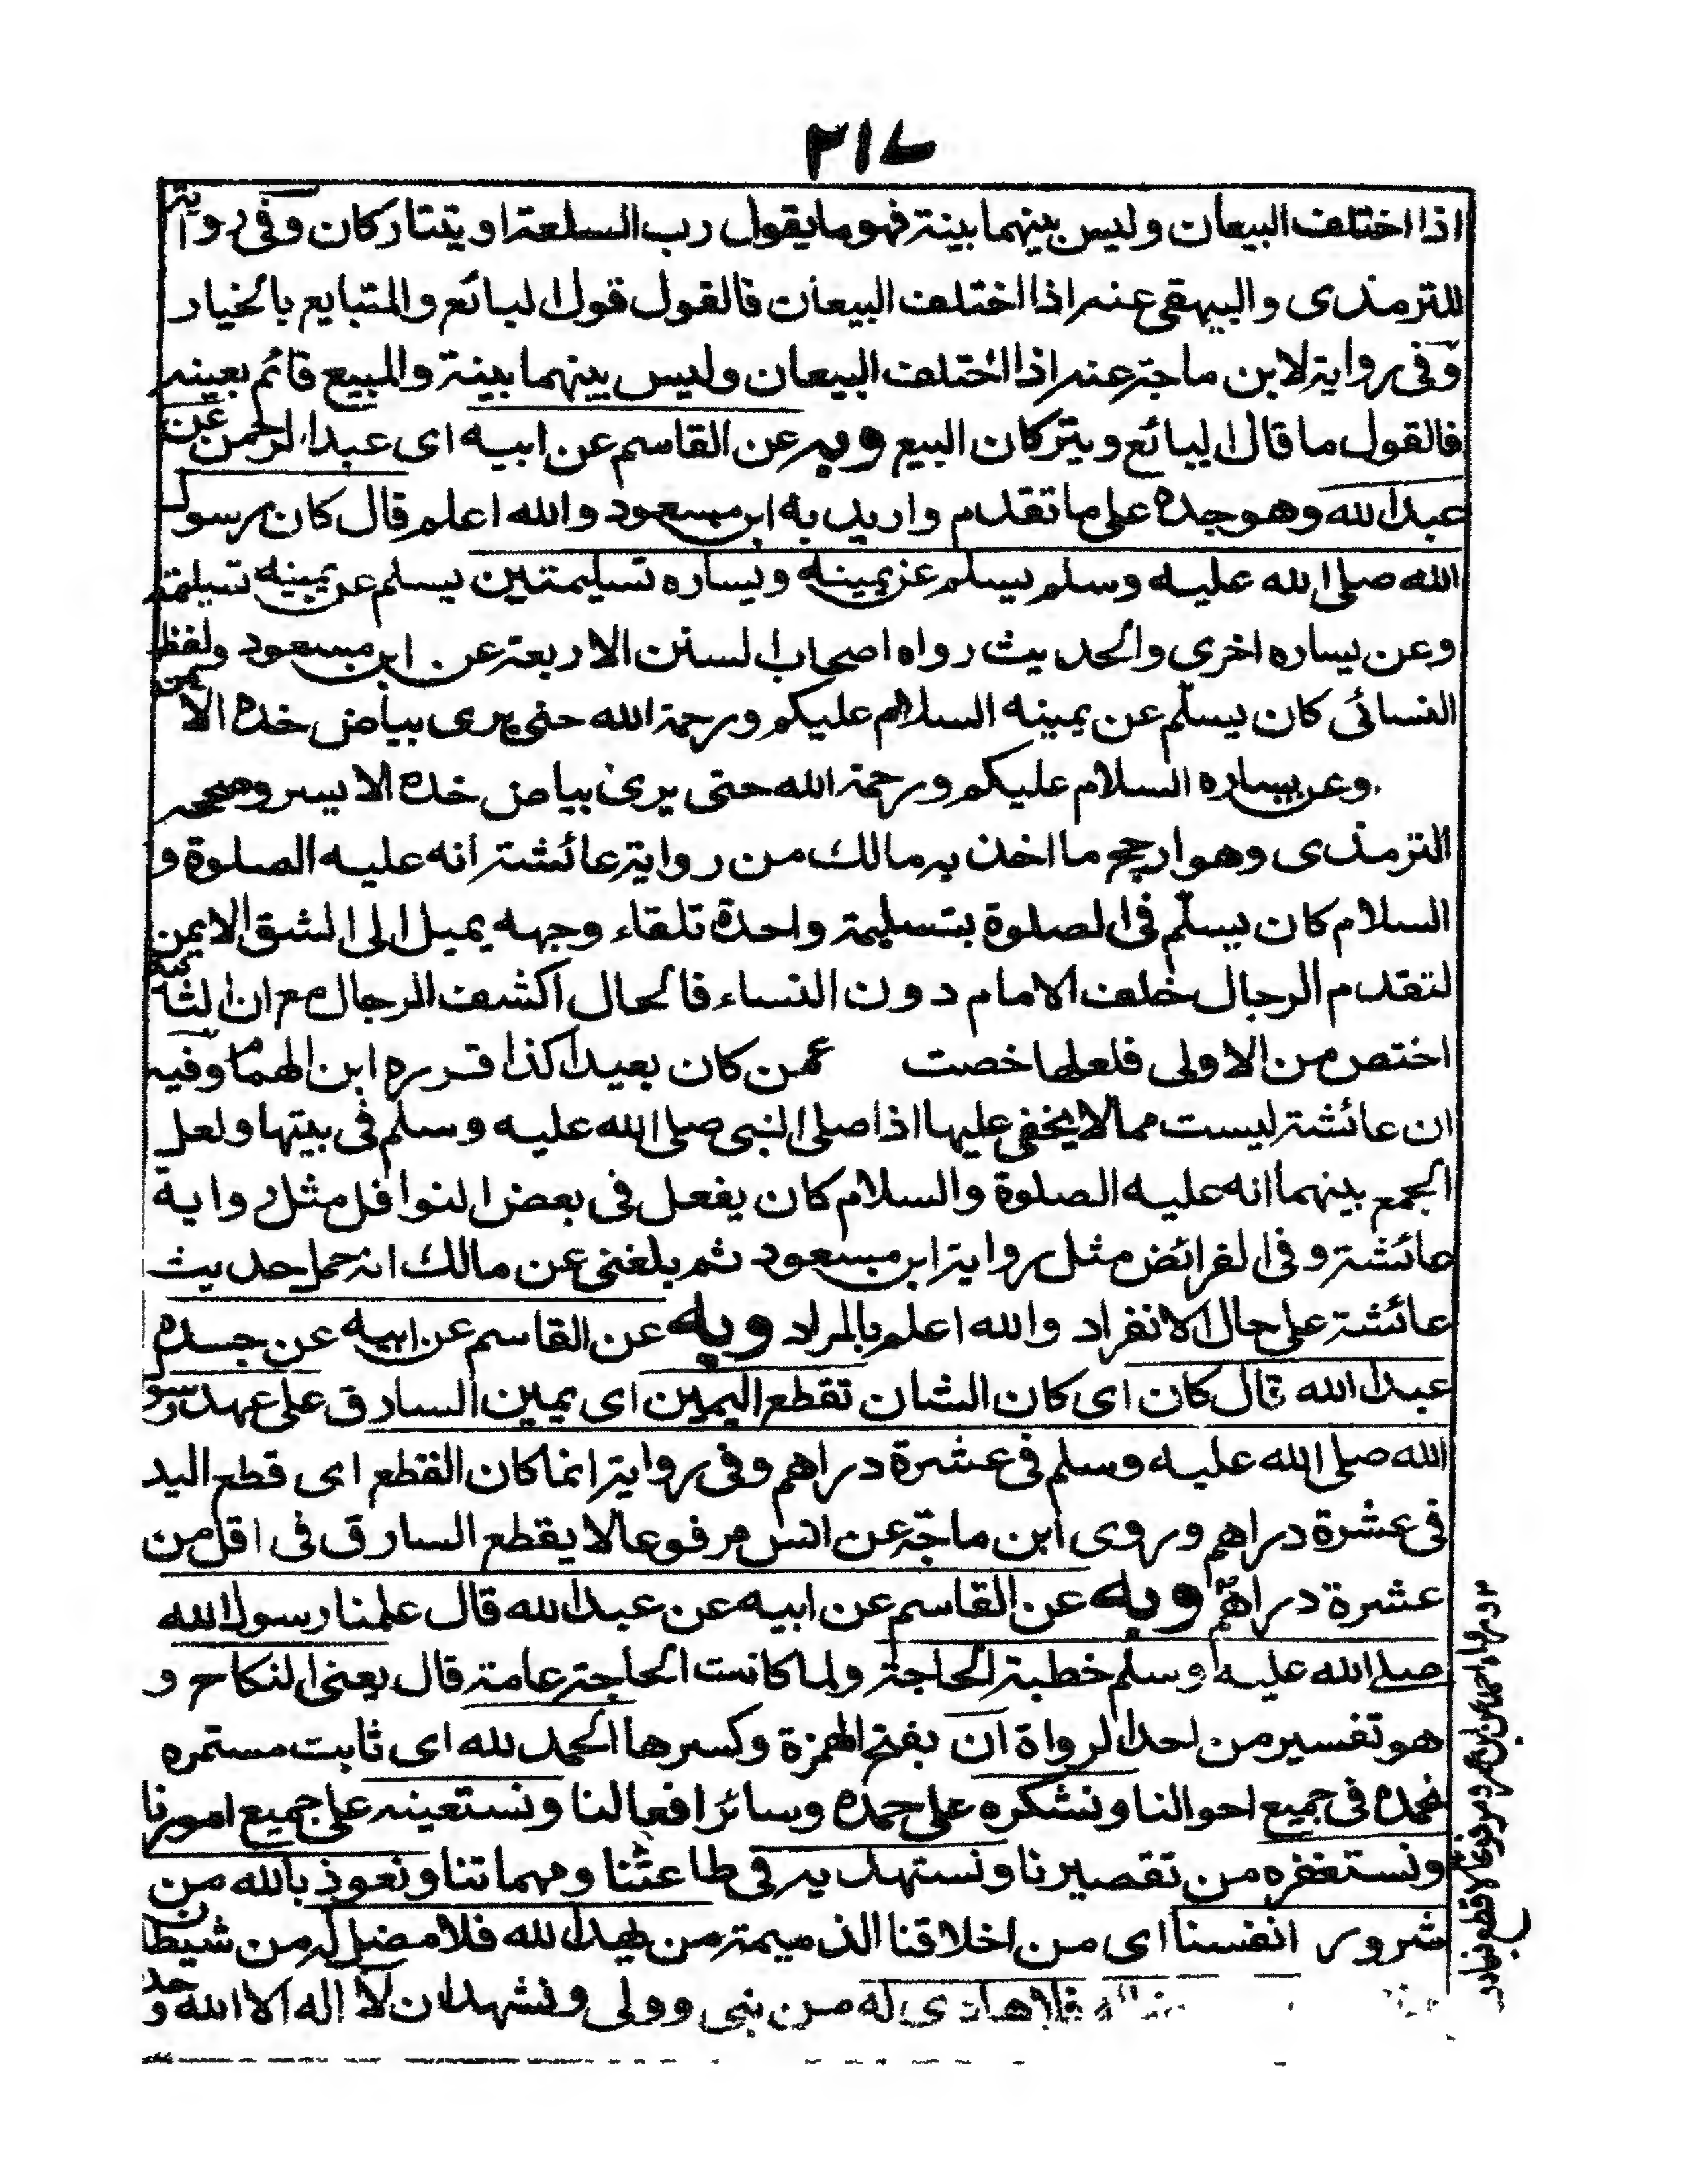 ٢١٧
اذا اختلف البيعان وليس بينهما بينة فهو ما يقول رب السلعة او يتتاركان وفى رواية
للترمذى والبيهقى عنه اذا اختلف البيعان فالقول قول البائع والمتبايع بالخيار
وفى رواية لابن ماجة عنه اذا اختلف البيعان وليس بينهما بينة والمبيع قائم بعينه
فالقول ما قال البائع ويتركان البيع وبه عن القاسم عن ابيه اى عبد الرحمن عن
عبد الله وهو جده على ما تقدم واريد به ابن مسعود والله اعلم قال كان رسول
الله صلى الله عليه وسلم يسلم عن يمينه ويساره تسليمتين يسلم عن يمينه تسليمة
وعن يساره اخرى والحديث رواه اصحاب السنن الاربعة عن ابن مسعود ولفظ
النسائى كان يسلم عن يمينه السلام عليكم ورحمة الله حتى يرى بياض خده الايمن
وعن يساره السلام عليكم ورحمة الله حتى يرى بياض خده الايسر وصححه
الترمذى وهو ارجح ما اخذ به مالك من رواية عائشة انه عليه الصلوة و
السلام كان يسلم فى الصلوة بتسليمة واحدة تلقاء وجهه يميل الى الشق الايمن
لتقدم الرجال خلف الامام دون النساء فالحال اكشف للرجال مع ان الثانية
اختص من الاولى فلعلها خصت عمن كان بعيدا كذا قرره ابن الهمام وفيه
ان عائشة ليست مما لا يخفى عليها اذا صلى النبى صلى الله عليه وسلم فى بيتها ولعل
الجمع بينهما انه عليه الصلوة والسلام كان يفعل فى بعض النوافل مثل رواية
عائشة وفى الفرائض مثل رواية ابن مسعود ثم بلغنى عن مالك انه حمل حديث
عائشة على حال الانفراد والله اعلم بالمراد وبه عن القاسم عن ابيه عن جده
عبد الله قال كان اى كان الشان تقطع اليمين اى يمين السارق على عهد رسول
الله صلى الله عليه وسلم فى عشرة دراهم وفى رواية انما كان القطع اى قطع اليد
فى عشرة دراهم وروى ابن ماجة عن انس مرفوعا لا يقطع السارق فى اقل من
عشرة دراهم وبه عن القاسم عن ابيه عن عبد الله قال علمنا رسول الله
صلى الله عليه وسلم خطبة الحاجة ولما كانت الحاجة عامة قال يعنى النكاح و
هو تفسير من احد الرواة ان بفتح الهمزة وكسرها الحمد لله اى ثابت مستمره
نحمده فى جميع احوالنا ونشكره على حمده وسائر افعالنا ونستعينه على جميع امورنا
ونستغفره من تقصيرنا ونستهديه فى طاعتنا ومهماتنا ونعوذ بالله من
شرور انفسنا اى من اخلاقنا الذميمة من يهد الله فلا مضل له من شيطان
فلا هادى له من نبى وولى ونشهد ان لا اله الا الله وحد